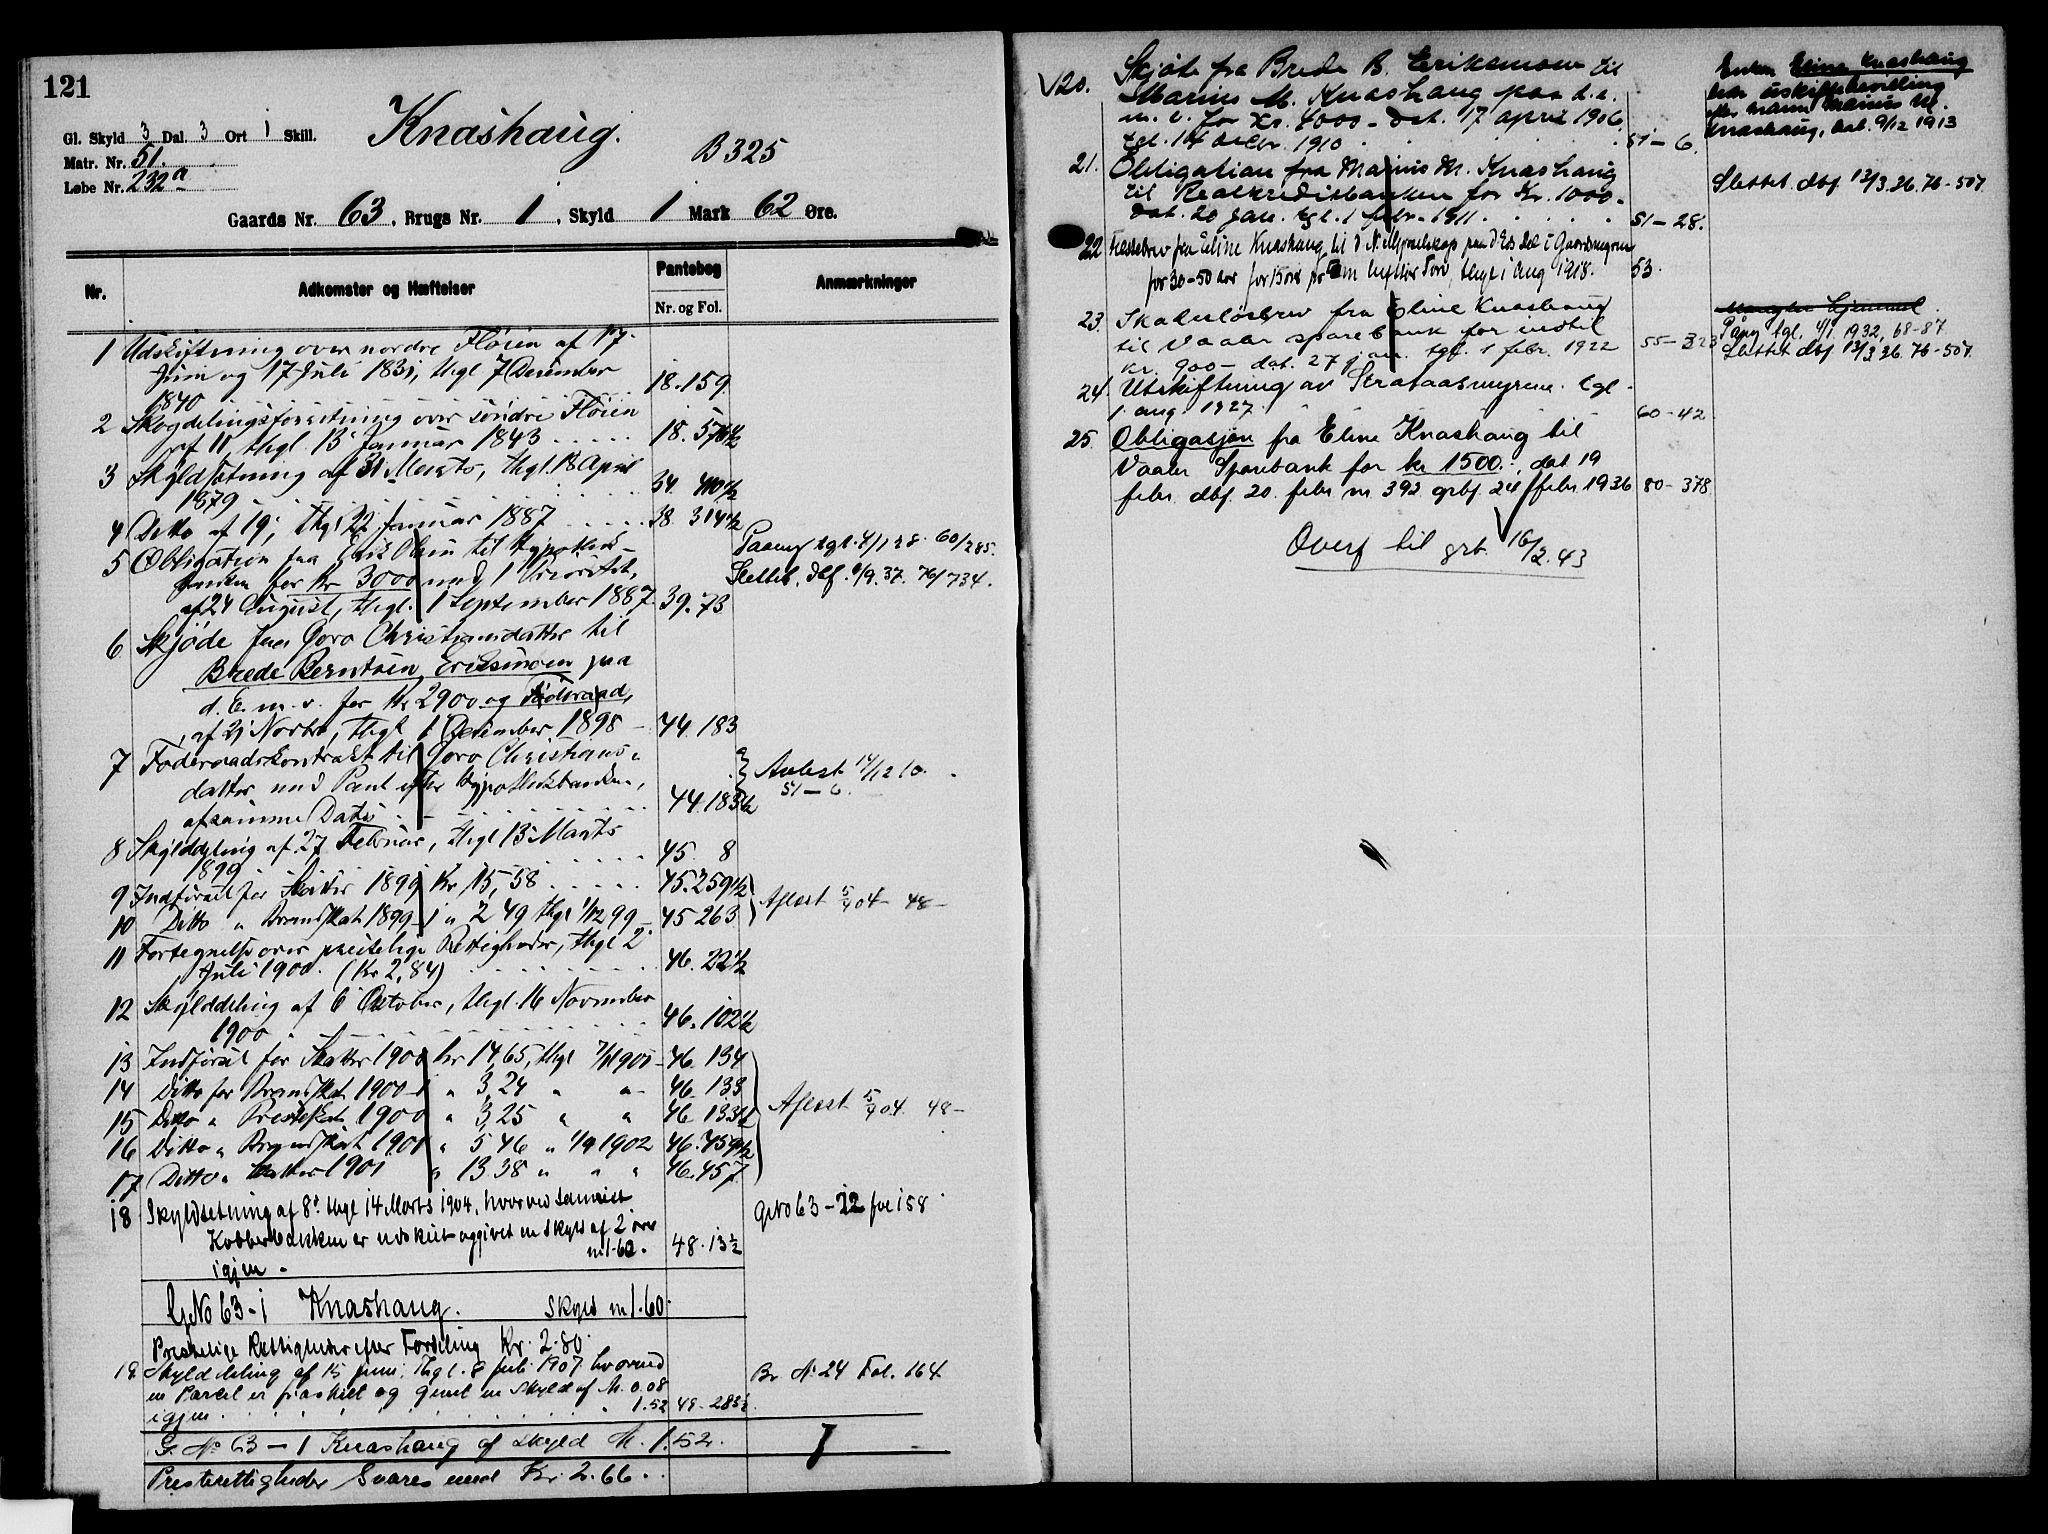 121
Gl. Skyld 3 Dal. 3 Ort 1 Skill.
Matr. Nr. 51.
Løbe Nr. 232a
Knashaug.
B 325
Gaards Nr. 63, Brugs Nr. 1, Skyld 1 Mark 62 Øre.
Nr. Adkomster og Hæftelser Pantebog Nr. og Fol. Anmærkninger
1 Udskiftning over nordre Fløien af 17
Juni og 17 Juli 1831, thgl 7 December
1840 18.159
2 Skogdelingsforretning over søndre Fløien
af 11, thgl. 13 Januar 1843 18.576 1/2
3 Skyldsætning af 31 Marts, thgl. 18 April
1879 34 410 1/2
4 Ditto af 19, thgl 22 Januar 1887 38. 314 1/2
5 Obligation fra Erik Olsen til Hypothek-
banken for Kr 3000 med 1 Prioritet,
af 24 August, thgl. 1 September 1887 39.73
Paany tgl. 4/1 28. 60/285.
Slettet. dbf. 6/9.37. 76/734.
6 Skjøde fra Goro Christiansdatter til
Brede Berntsen Eriksmoen paa
d. E. m. v. for Kr 2900 og Föderaad,
af 21 Novbr, thgl 1 December 1898 44 183
7 Föderaadskontrakt til Goro Christians-
datter med Pant efter Hypothekbanken,
af samme Dato 44.183 1/2
Avlest 14/12 10.
51-6.
8 Skylddeling af 27 Februar, thgl 13 Marts
1899 45 8
9 Indførsel for Skatter 1899 Kr 15,58 45.259 1/2
10 Ditto " Brandskat 1899 " 2 49 thgl 1/12 99 45 263
Aflæst 5/9 04 - 48 -
11 Fortegnelse over præstelige Rettigheder, thgl 2
Juli 1900. (Kr 2,84) 46.22 1/2
12 Skylddeling af 6 October, thgl. 16 November
1900 46.102 1/2
13 Indførsel for Skatter 1900 Kr 14,65, thgl 7/1 1901 46 134
14 Ditto for Brandskat 1900 " 3,24 " " 46 133
15 Ditto " Presteskat 1900 " 3,25 " " 46 133 1/2
16 Ditto " Brandskat 1901 " 5 46 " 1/9 1902 46.459 1/2
17 Ditto " Skatter 1901 " 13 38 " " " 46.457
Aflæst 5/9 04. 48 -
18 Skyldsetning af 8' thgl 14 Marts 1904, hvorved
Kobberbakken er udskilt og givet en skyld af 2 øre
igjen - m 1-60. 48.13 1/2
GNo 63-12 fol 158
GNo 63-1 Knashaug. Skyld m 1.60.
Prestelige Rettigheder efter Fordeling Kr. 2.80.
19 Skylddeling af 15 juni, thgl. 8 juli 1907 hvorved
en Parcel er fraskilt og givet en skyld af M. 0.08
igjen 1.52 49-283 1/2
Br No 24 Fol. 164
G. No 63-1 Knashaug af skyld M. 1.52.
Presterettigheder svares med Kr. 2.66.
V20. Skjøte fra Brede B. Eriksmoen til
Marius M. Knashaug paa d.e.
m.v. for Kr. 4000 - dat. 17 april 1906
tgl. 14 decbr. 1910 51-6.
Enken Eline Knashaug
har uskiftebevilling
efter mann Marius M.
Knashaug, dat. 9/12 1913
21. Obligation fra Marius M. Knashaug
til Realkreditbanken for Kr. 1000 -
dat. 20 jan. tgl. 1 febr. 1911 51-28.
Slettet dbf 13/3.36. 76-507.
22 Festebrev fra Eline Knashaug til
for 30-50 aar for 15 øre pr thgl i Aug 1918. 53.
23. Skadesløsbrev fra Eline Knashaug
til Vaaler sparebank for indtil
kr. 900 - dat. 27 jan. tgl. 1 febr. 1922 55-323
Mangler hjemmel.
Påny tgl. 4/1 1932, 68-87
Slettet dbf 13/3.36. 76-507.
24. Utskiftning av Strataasmyrene. tgl.
1 aug. 1927. 60-42
25. Obligasjon fra Eline Knashaug til
Vaaler Sparebank for kr 1500.-, dat 19
febr. dbf. 20. febr nr 392 grbf. 24 febr 1936 80-378
Overf til grb. 16/2.43